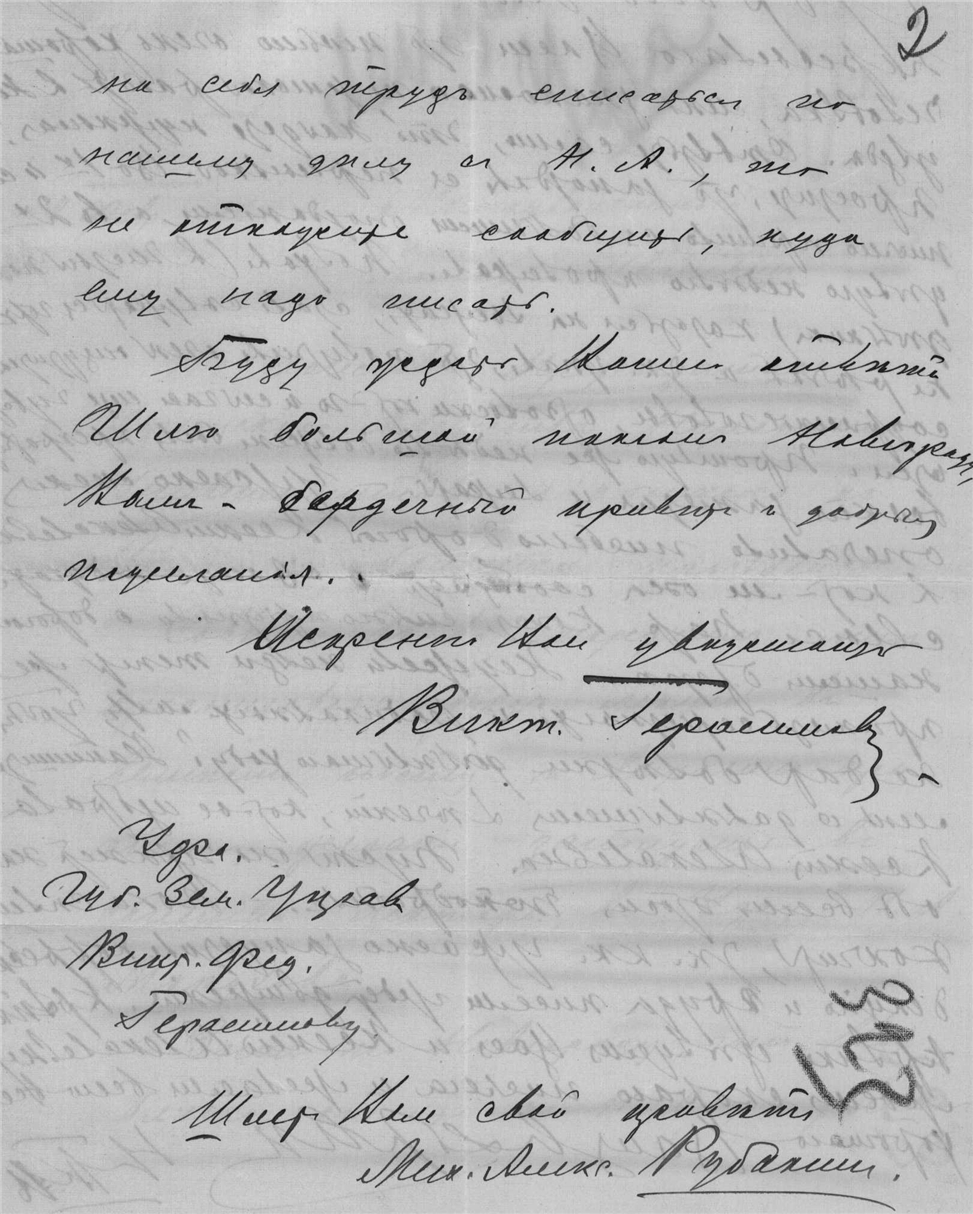 2
на себя трудъ списаться по
нашему дѣлу съ Н. А., то
не откажите сообщить, куда
ему надо писать.
Буду ждать Вашего отвѣта
Шлю большой поклонъ Новгороду,
Вамъ - сердечный привѣтъ и добрыя
пожеланія.
Искренно Васъ уважающій
Викт. Герасимовъ
Уфа.
Губ. Зем. Управ
Викт. Фед.
Герасимову
Шлетъ Вамъ свой привѣтъ
Мих. Алекс. Рубакинъ.